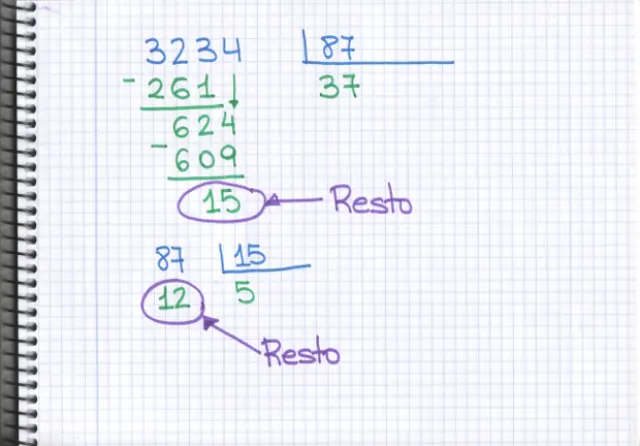 3234 87
- 261 37
624
- 609
15 Resto
87 15
12 5
Resto